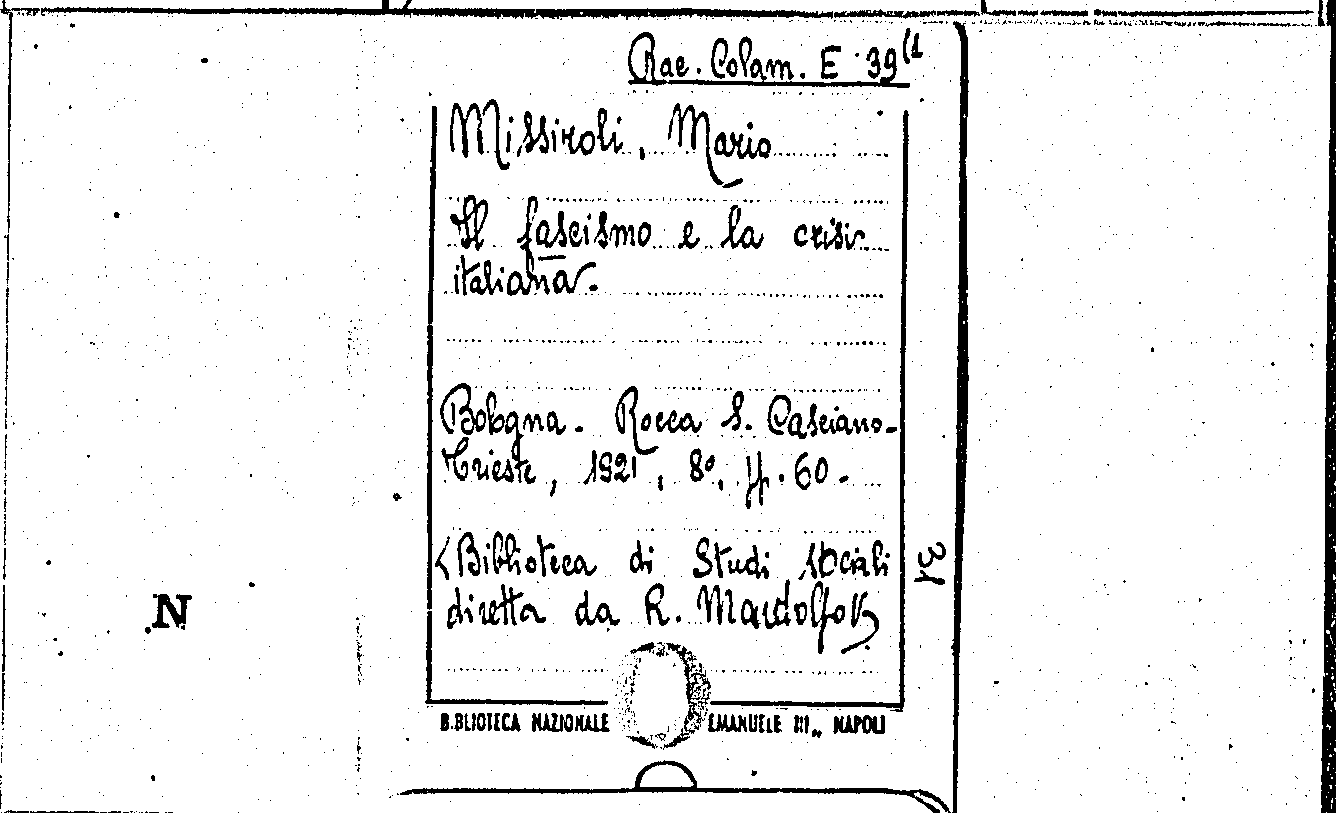 Rac. Colam. E 39 (1
Missiroli, Mario
Il fascismo e la crisi
italiana.
Bologna. Rocca S. Casciano-
Trieste, 1921, 8º, pp. 60.
(Biblioteca di Studi sociali
diretta da R. Mondolfo)
31
N
B.BLIOTECA NAZIONALE EMANUELE III„ NAPOLI